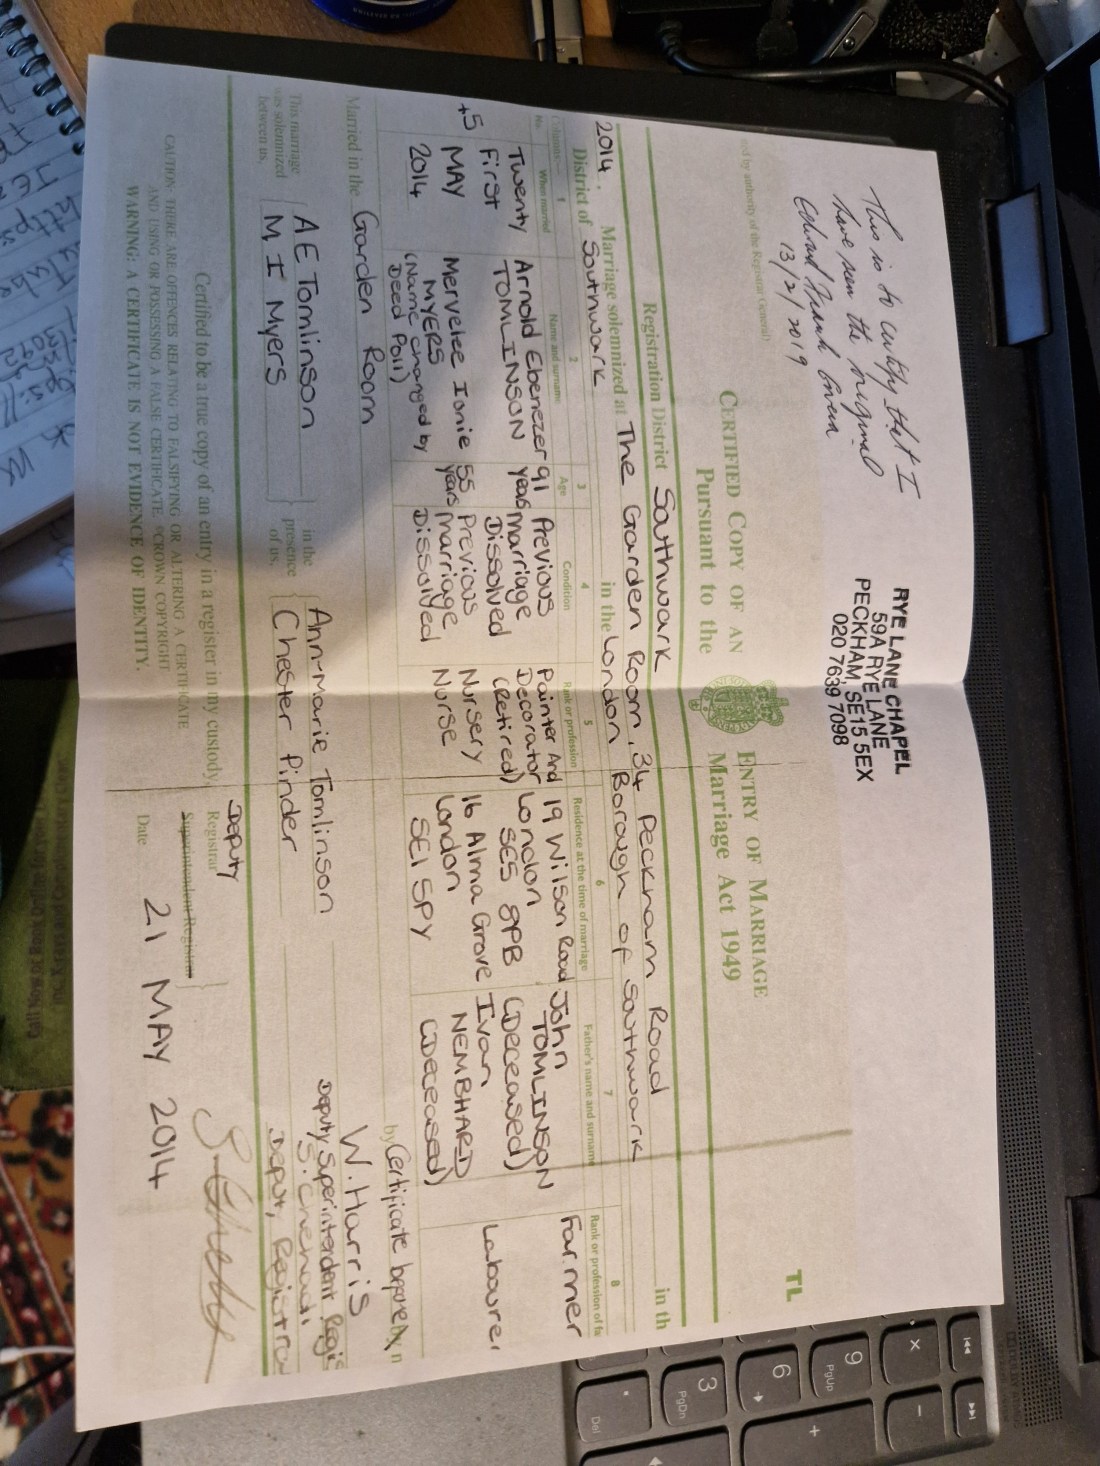 This is to certify that I
have seen the original
13/2/2019
RYE LANE CHAPEL
59A RYE LANE
PECKHAM, SE15 5EX
020 7639 7098
TL
ed by authority of the Registrar General
CERTIFIED COPY OF AN ENTRY OF MARRIAGE
Pursuant to the Marriage Act 1949
Registration District Southwark
2014. Marriage solemnized at The Garden Room, 34 Peckham Road
District of Southwark in the London Borough of Southwark in th
Columns:- 1 2 3 4 5 6 7 8
No. When married Name and surname Age Condition Rank or profession Residence at the time of marriage Father's name and surname Rank or profession of fa
Twenty Arnold Ebenezer 91 Previous Painter And 19 Wilson Road John Farmer
First TOMLINSON years Marriage Decorator London TOMLINSON
Dissolved (Retired) SE5 8PB (Deceased)
+5 MAY Mervelee Ionie 55 Previous Nursery 16 Alma Grove Ivan Labourer
2014 MYERS years Marriage Nurse London NEMBHARD
(Name changed by Dissolved SE1 5PY (Deceased)
Deed Poll)
Married in the Garden Room by Certificate before
This marriage was solemnized between us, A E Tomlinson in the presence of us, Ann-Marie Tomlinson W. Harris
M I Myers Chester Pinder Deputy Superintendent Regis
Deputy Registrar
Certified to be a true copy of an entry in a register in my custody, Deputy Registrar
Superintendent Registrar
CAUTION: THERE ARE OFFENCES RELATING TO FALSIFYING OR ALTERING A CERTIFICATE
AND USING OR POSSESSING A FALSE CERTIFICATE. ©CROWN COPYRIGHT
WARNING: A CERTIFICATE IS NOT EVIDENCE OF IDENTITY.
Date 21 MAY 2014
9
PgUp
6
3
PgDn
.
Del
×
-
+